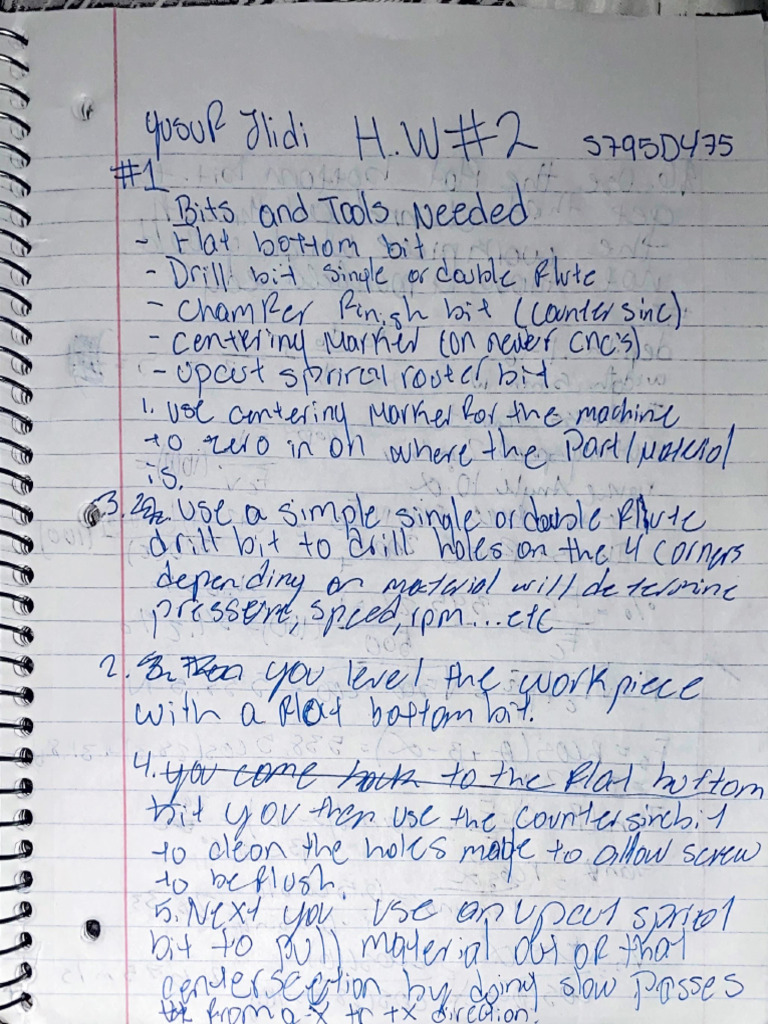 Yusuf Jlidi H.W#2 S795D475
#1
Bits and Tools Needed
- Flat bottom bit
- Drill bit single or double flute
- Chamfer Finish bit (countersinc)
- Centering Marker (on never CNC's)
- Upcut spriral router bit
1. Use centering Marker for the machine
to zero in on where the Part/Material
is.
3. Use a simple single or double flute
drill bit to drill holes on the 4 corners
depending on material will determine
pressure, speed, rpm...etc
2. you level the workpiece
with a flat bottom bit.
4. you come back to the flat bottom
bit you then use the countersinc bit
to clean the holes made to allow screw
to be flush.
5. Next you use an upcut sprial
bit to pull material out of that
center section by doing slow passes
from a -x to +x direction.